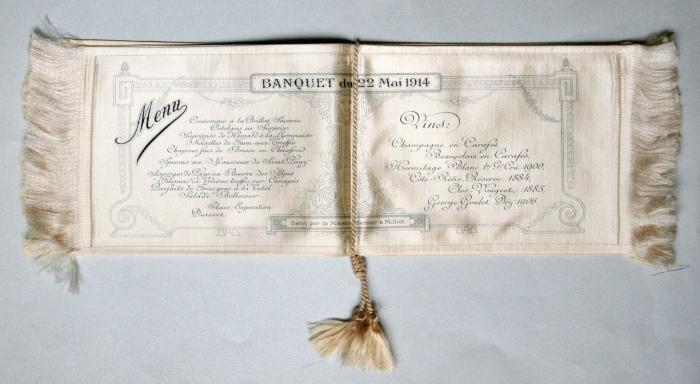 BANQUET du 22 Mai 1914
Menu
Consommé à la Brillat Savarin
Ortolans en Surprise
Suprêmes de Homard à la Lyonnaise
Noisettes de Faon aux Truffes
Chapons fins de Bresse en Chaufroid
Spooms au Mousseux de Saint Péray
Asperges de Pays au Beurre des Alpes
Faisans de Volière truffés sur Canapés
Parfaits de Foies gras à la Vatel
Salade Bellecour
Glace Exposition
Dessert
Vins:
Champagne en Carafes
Beaujolais en Carafes
Hermitage Blanc 1er Gd Cru 1900
Côte-Rôtie Réserve 1884
Clos Vougeot 1885
George Goulet Dry 1906
Servi par la Maison & Milliet